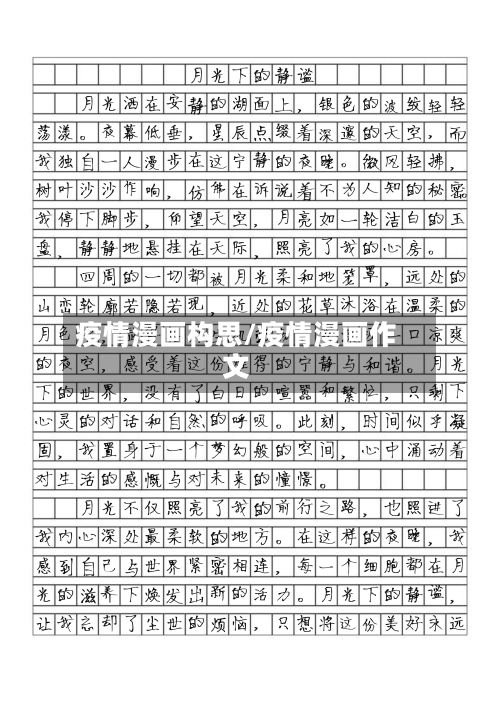 月光下的静谧
月光洒在安静的湖面上，银色的波纹轻轻
荡漾。夜幕低垂，星辰点缀着深邃的天空，而
我独自一人漫步在这宁静的夜晚。微风轻拂，
树叶沙沙作响，仿佛在诉说着不为人知的秘密
我停下脚步，仰望天空，月亮如一轮洁白的玉
盘，静静地悬挂在天际，照亮了我的心房。
四周的一切都被月光柔和地笼罩，远处的
山峦轮廓若隐若现，近处的花草沐浴在温柔的
月色
口凉爽
疫情漫画构思/疫情漫画作
文
的夜空，感受着这份难得的宁静与和谐。月光
下的世界，没有了白日的喧嚣和繁忙，只剩下
心灵的对话和自然的呼吸。此刻，时间似乎凝
固，我置身于一个梦幻般的空间，心中涌动着
对生活的感慨与对未来的憧憬。
月光不仅照亮了我的前行之路，也照进了
我内心深处最柔软的地方。在这样的夜晚，我
感到自己与世界紧密相连，每一个细胞都在月
光的滋养下焕发出新的活力。月光下的静谧，
让我忘却了尘世的烦恼，只想将这份美好永远